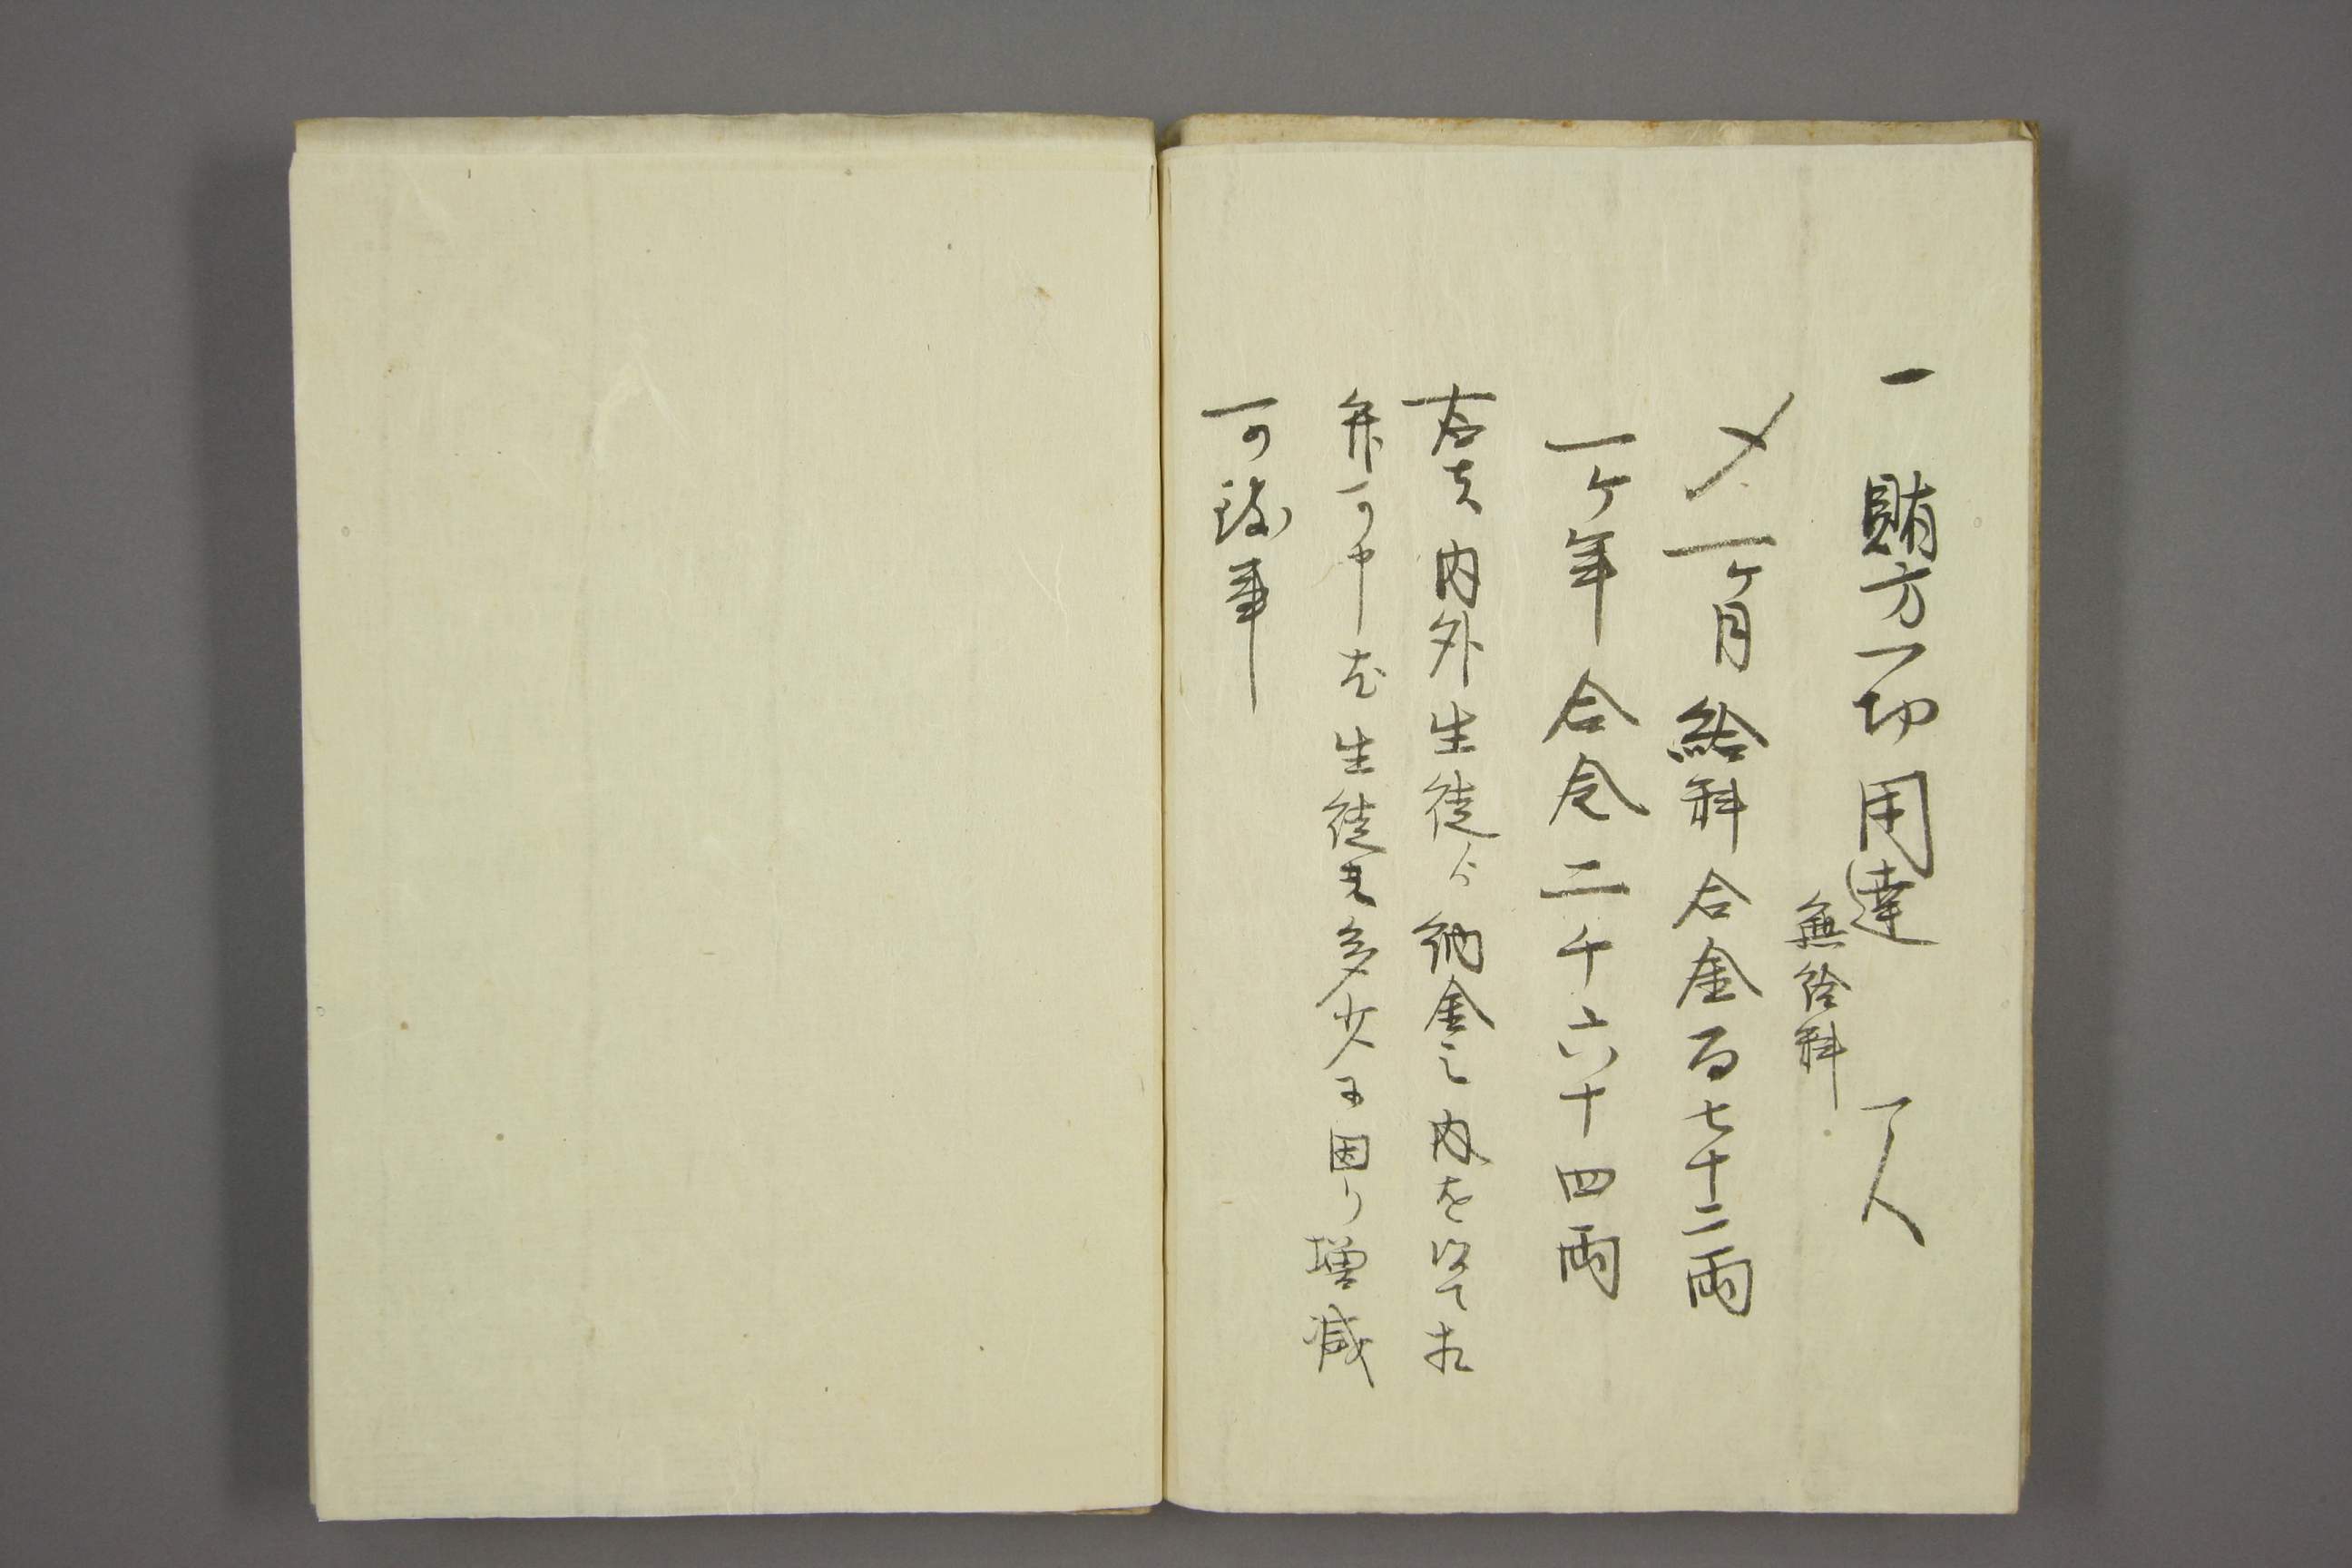 一 賄方一切用達 一人
無給料
〆一ケ月給料合金百七十二両
一ケ年合金二千六十四両
右者内外生徒ゟ納金之内を以て相
弁可申尤生徒之多少に因り増減
可致事